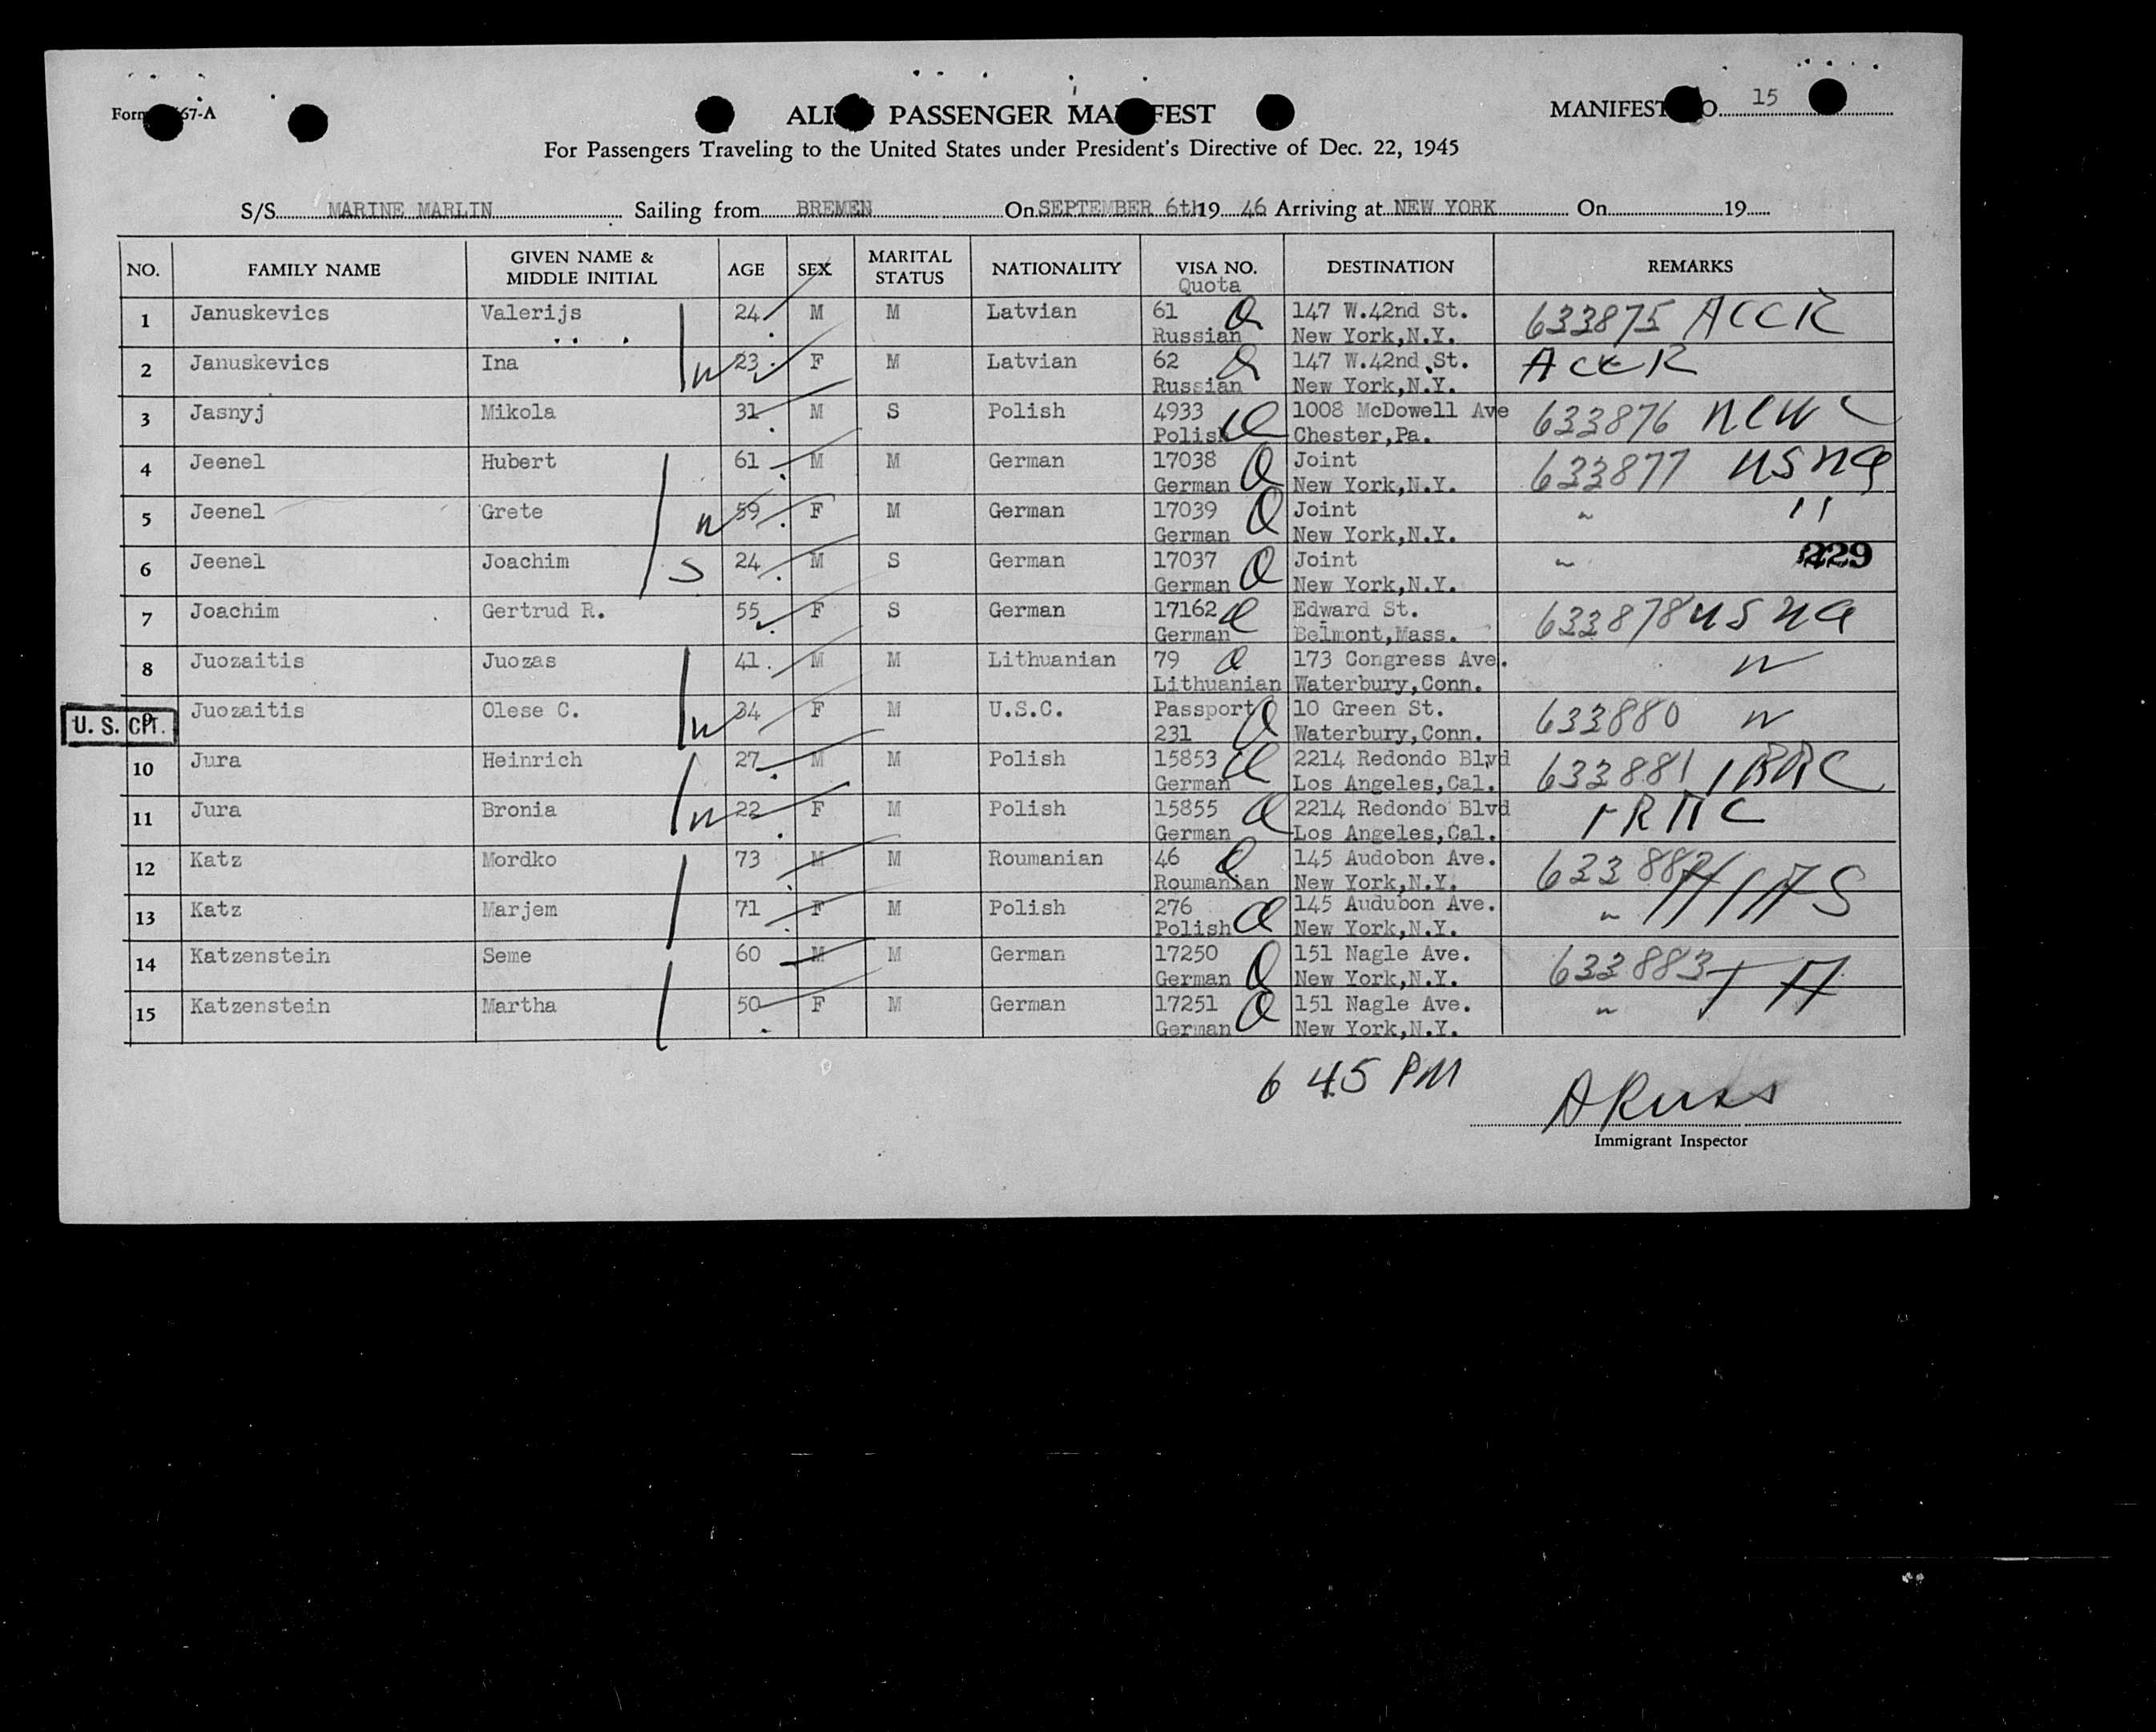 ALIEN PASSENGER MANIFEST
MANIFEST NO. 15
For Passengers Traveling to the United States under President's Directive of Dec. 22, 1945
S/S MARINE MARLIN Sailing from BREMEN On SEPTEMBER 6th 19 46 Arriving at NEW YORK On 19
NO. FAMILY NAME GIVEN NAME & MIDDLE INITIAL AGE SEX MARITAL STATUS NATIONALITY VISA NO. Quota DESTINATION REMARKS
1 Januskevics Valerijs 24 M M Latvian 61 147 W.42nd St. 633875 ACCR
Russian New York,N.Y.
2 Januskevics Ina W 23 F M Latvian 62 147 W.42nd St. ACCR
Russian New York,N.Y.
3 Jasnyj Mikola 31 M S Polish 4933 1008 McDowell Ave 633876 NCWC
Polish Chester,Pa.
4 Jeenel Hubert 61 M M German 17038 Joint 633877 USNA
German New York,N.Y.
5 Jeenel Grete W 59 F M German 17039 Joint " "
German New York,N.Y.
6 Jeenel Joachim S 24 M S German 17037 Joint " 229
German New York,N.Y.
7 Joachim Gertrud R. 55 F S German 17162 Edward St. 633878 USNA
German Belmont,Mass.
8 Juozaitis Juozas 41 M M Lithuanian 79 173 Congress Ave.
Lithuanian Waterbury,Conn.
U. S. CIT. 9 Juozaitis Olese C. W 34 F M U.S.C. Passport 10 Green St. 633880
231 Waterbury,Conn.
10 Jura Heinrich 27 M M Polish 15853 2214 Redondo Blvd 633881 IRRC
German Los Angeles,Cal.
11 Jura Bronia W 22 F M Polish 15855 2214 Redondo Blvd IRRC
German Los Angeles,Cal.
12 Katz Mordko 73 M M Roumanian 46 145 Audobon Ave. 633882 HIAS
Roumanian New York,N.Y.
13 Katz Marjem 71 F M Polish 276 145 Audubon Ave. "
Polish New York,N.Y.
14 Katzenstein Seme 60 M M German 17250 151 Nagle Ave. 633883
German New York,N.Y.
15 Katzenstein Martha 50 F M German 17251 151 Nagle Ave. "
German New York,N.Y.
6 45 PM
Immigrant Inspector